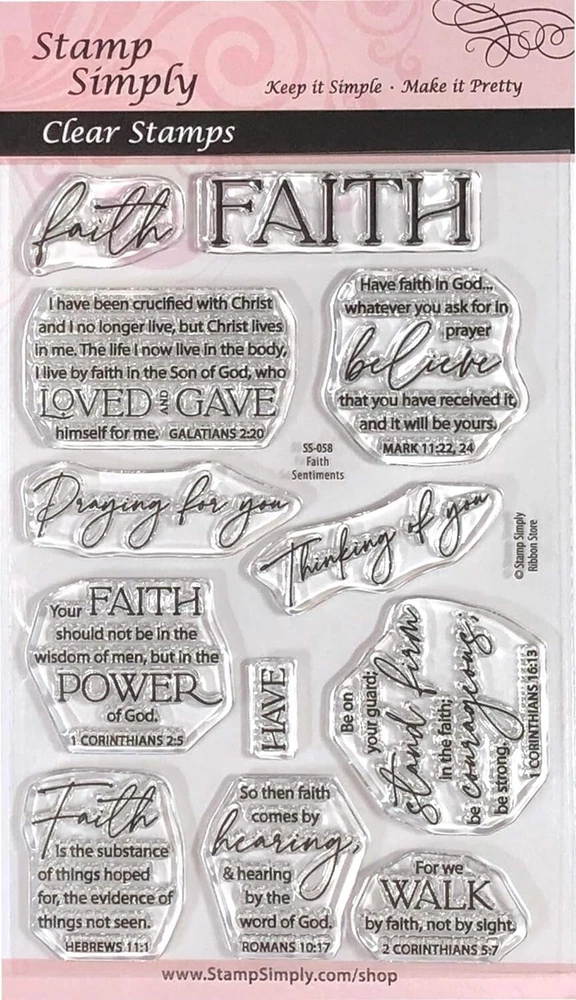 Stamp
Simply
Keep it Simple · Make it Pretty
Clear Stamps
faith
FAITH
I have been crucified with Christ
and I no longer live, but Christ lives
in me. The life I now live in the body,
I live by faith in the Son of God, who
LOVED AND GAVE
himself for me. GALATIANS 2:20
Have faith in God...
whatever you ask for in
prayer
believe
that you have received it,
and it will be yours.
MARK 11:22, 24
SS-058
Faith
Sentiments
Praying for you
Thinking of you
©Stamp Simply
Ribbon Store
Your FAITH
should not be in the
wisdom of men, but in the
POWER
of God.
1 CORINTHIANS 2:5
HAVE
Be on
your guard;
stand firm
in the faith;
be courageous;
be strong.
1 CORINTHIANS 16:13
Faith
is the substance
of things hoped
for, the evidence of
things not seen.
HEBREWS 11:1
So then faith
comes by
hearing,
& hearing
by the
word of God.
ROMANS 10:17
For we
WALK
by faith, not by sight.
2 CORINTHIANS 5:7
www.StampSimply.com/shop